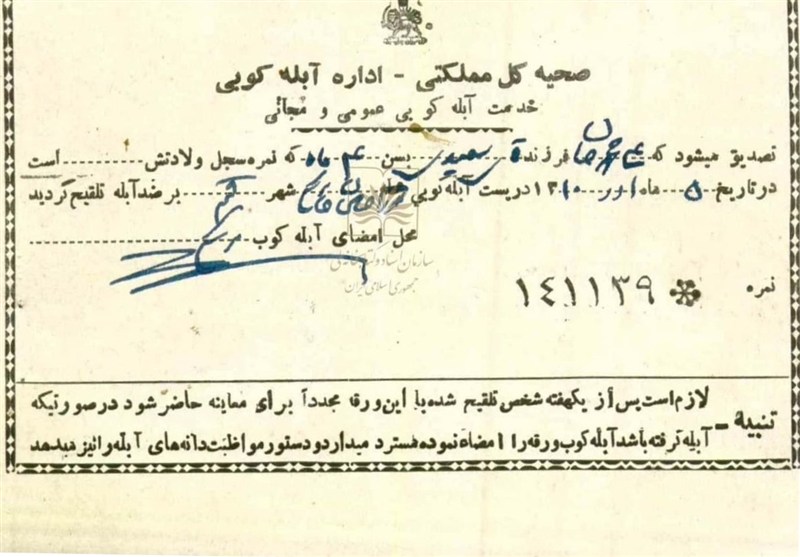 صحیه کل مملکتی - اداره آبله کوبی
خدمت آبله کوبی عمومی و مجانی
تصدیق میشود که فرزند سعیدی بسن ۴ ماه که نمره سجل ولادتش است
در تاریخ ۵ ماه ۱۳۱۰ در پست آبله کوبی شهر بر ضد آبله تلقیح گردید
محل امضای آبله کوب
سازمان اسناد و کتابخانه ملی
جمهوری اسلامی ایران
نمره ١٤١١٣٩
تنبیه - لازم است پس از یکهفته شخص تلقیح شده با این ورقه مجدداً برای معاینه حاضر شود در صورتیکه
آبله گرفته باشد آبله کوب ورقه را امضاء نموده مسترد میدارد و دستور مواظبت دانه های آبله را نیز میدهد